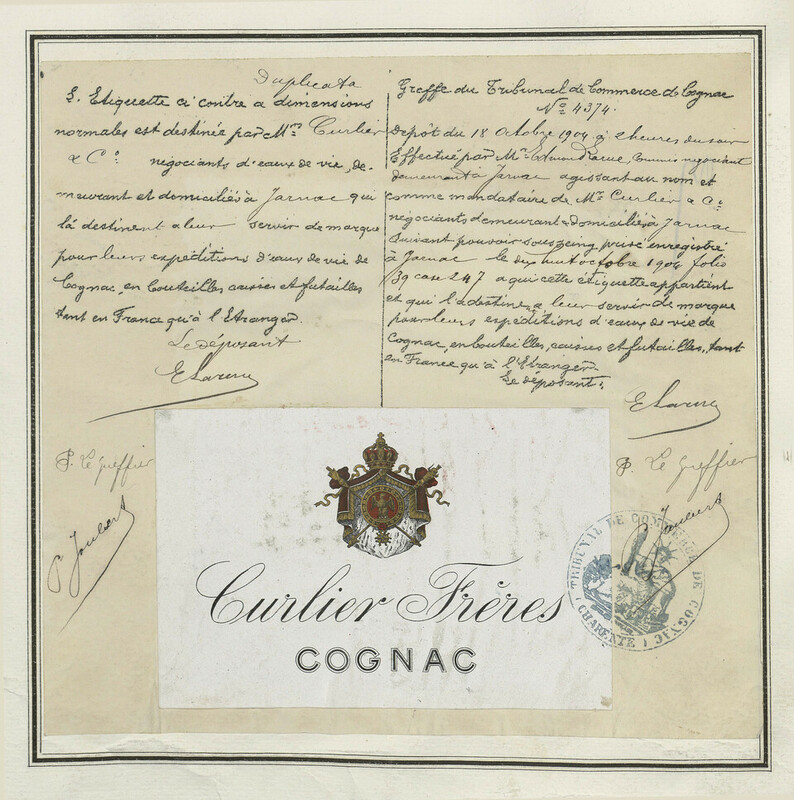 Duplicata
L. Etiquette ci contre a dimensions
normales est destinée par Mrs Curlier
& Co. négociants d'eaux de vie, de-
meurant et domiciliés à Jarnac qui
la destinent a leur servir de marque
pour leurs expéditions d'eaux de vie de
Cognac, en bouteilles caisses et futailles
tant en France qu'à l'Etranger.
Le déposant
E Larue
P. Le Greffier
P Joubert
Greffe du Tribunal de Commerce de Cognac
No 4374.
Depôt du 18 Octobre 1904 à 2 heures du soir
Effectué par Mr Commis négociant
demeurant à Jarnac agissant au nom et
comme mandataire de Mrs Curlier & Co.
négociants demeurant & domiciliés à Jarnac
Suivant pouvoir sous seing privé enregistré
à Jarnac le dix huit octobre 1904 folio
39 case 247 a qui cette étiquette appartient
et qui l'a destinée a leur servir de marque
pour leurs expéditions d'eaux de vie de
Cognac, en bouteilles, caisses et futailles, tant
en France qu'à l'Etranger.
Le déposant.
E Larue
P. Le Greffier
P Joubert
Curlier Frères
COGNAC
TRIBUNAL DE COMMERCE DE COGNAC
(CHARENTE)